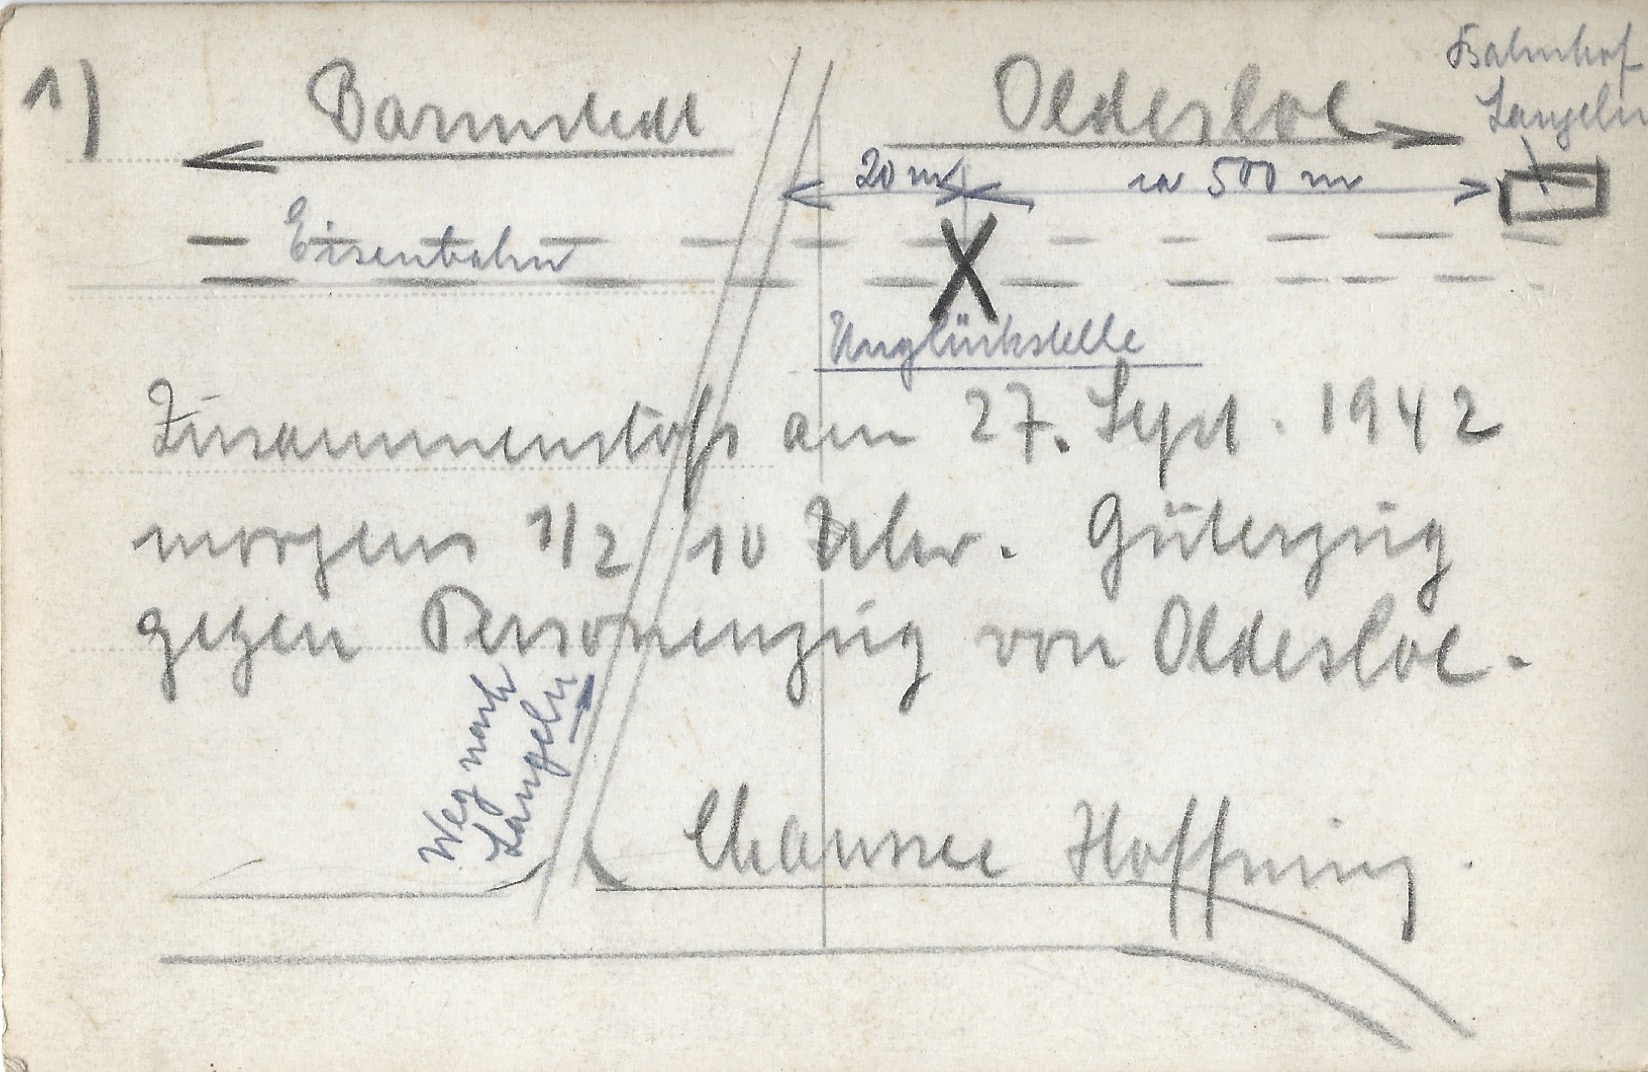 1)
Barmstedt
Oldesloe
Bahnhof
Langeln
20 m
ca 500 m
Eisenbahn
Unglückstelle
Zusammenstoß am 27. Sept. 1942
morgens 1/2 10 Uhr. Güterzug
gegen Personenzug von Oldesloe.
Weg nach
Langeln
Chaussee Hoffnung.